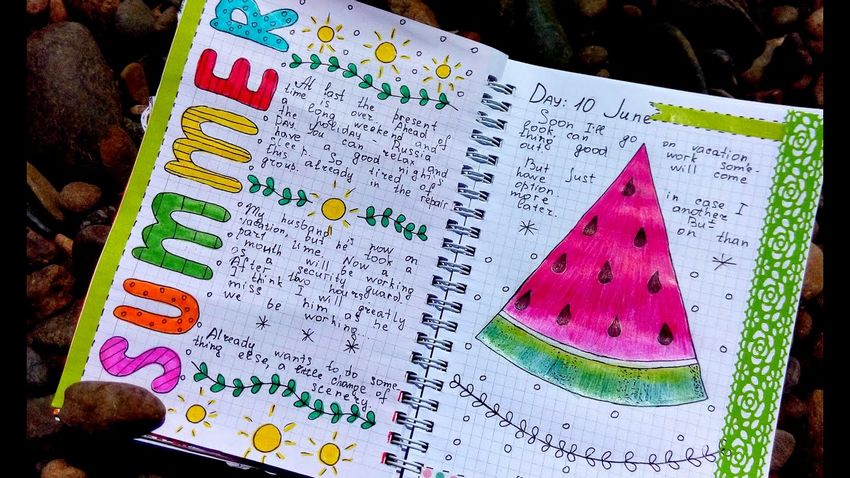 SUMMER
At last the present
time is over. Ahead of
a long weekend and
the holiday - Russia
Day. You can relax and
have a good night's
sleep. So tired of
this already in the repair
group.
My husband is now on
vacation, but he took a
part time. Now a
mouth will be working
as a security guard.
After two hours
I think I will greatly
miss him as he
we be working...
Already wants to do some
thing else, a little change of
scenery.
DAY: 10 June
Soon I'll go on vacation
look can work some-
thing good will come
out
But just in case I
have another
option But
more on than
later.